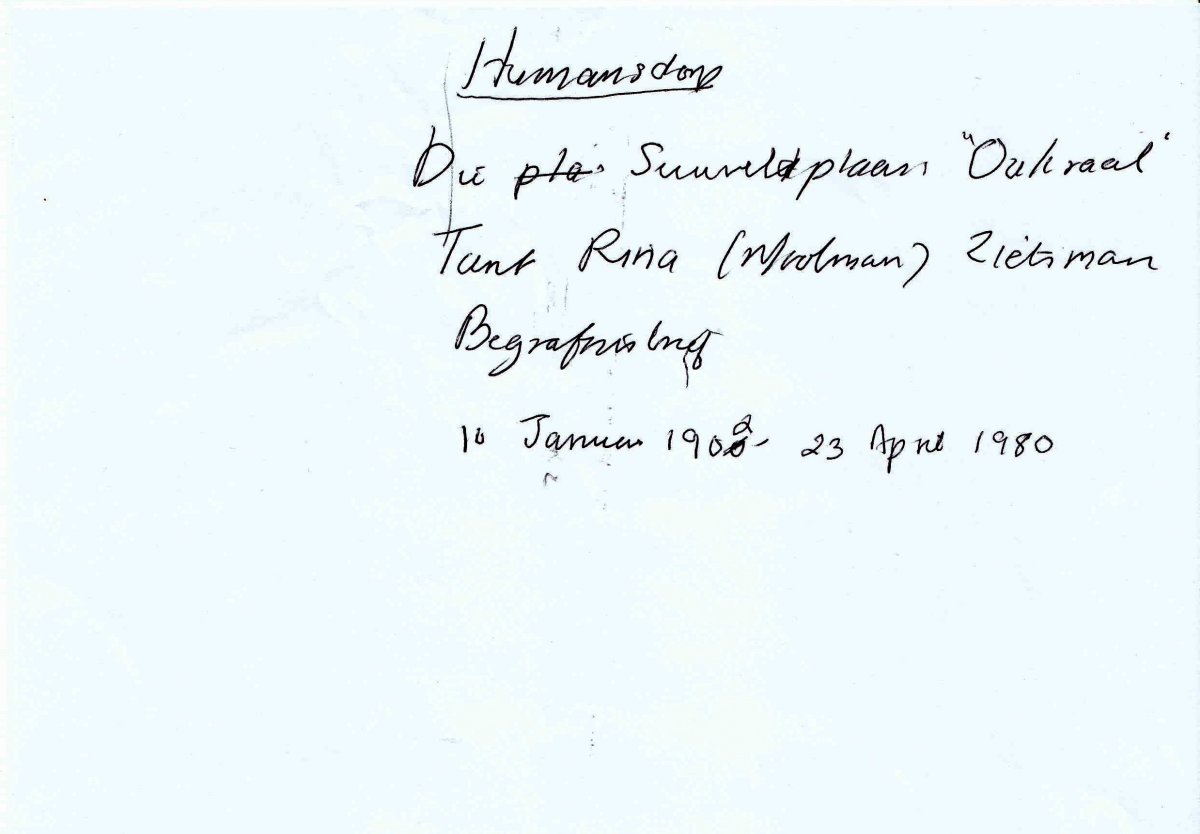 Humansdorp
Die ~~pla~~ Suurveldplaas "Oukraal"
Tant Rina (Moolman) Zietsman
Begrafnisbrief
10 Januar 1902 - 23 April 1980